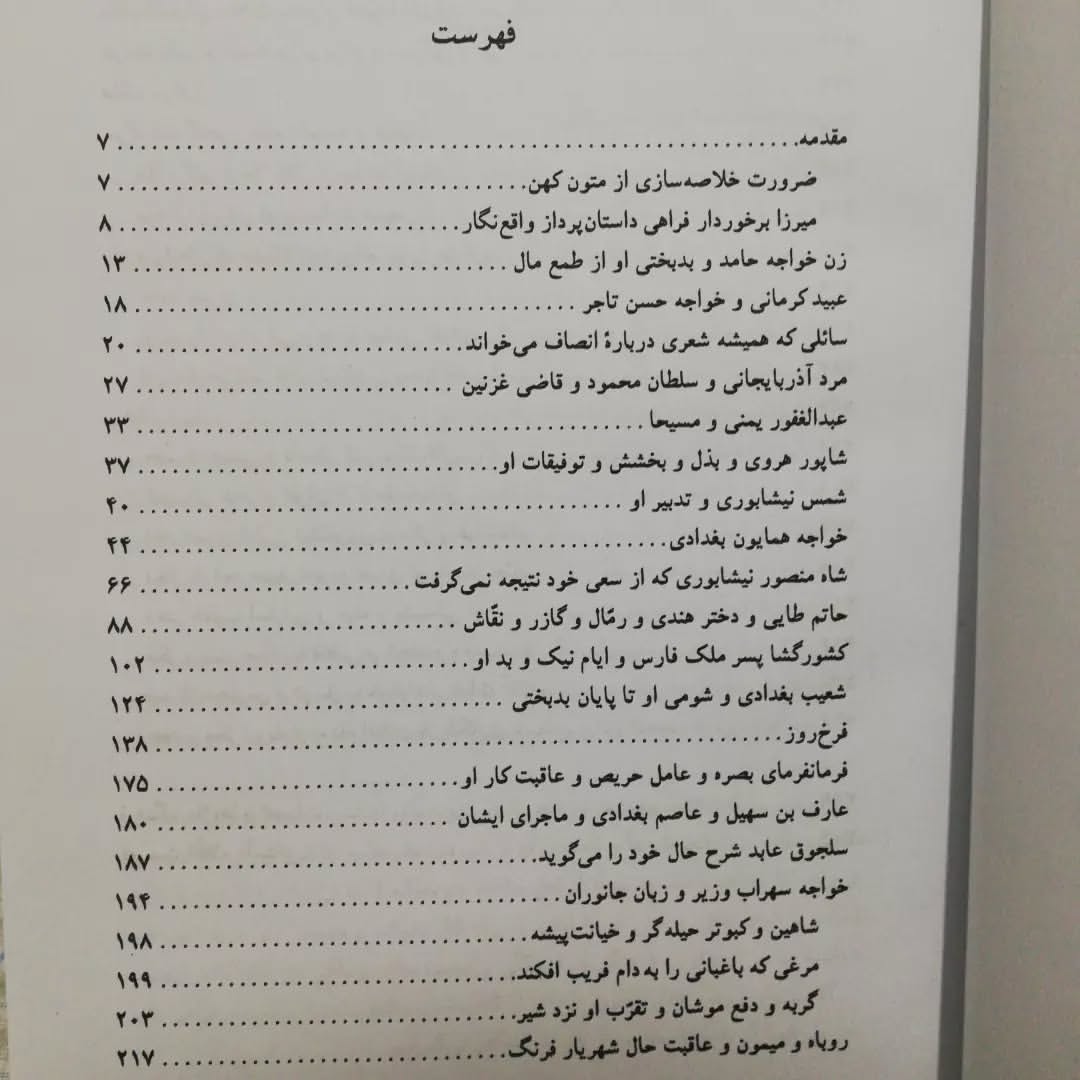 فهرست
مقدمه ........ ۷
ضرورت خلاصه‌سازی از متون کهن ........ ۷
میرزا برخوردار فراهی داستان‌پرداز واقع‌نگار ........ ۸
زن خواجه حامد و بدبختی او از طمع مال ........ ۱۳
عبید کرمانی و خواجه حسن تاجر ........ ۱۸
سائلی که همیشه شعری دربارهٔ انصاف می‌خواند ........ ۲۰
مرد آذربایجانی و سلطان محمود و قاضی غزنین ........ ۲۷
عبدالغفور یمنی و مسیحا ........ ۳۳
شاپور هروی و بذل و بخشش و توفیقات او ........ ۳۷
شمس نیشابوری و تدبیر او ........ ۴۰
خواجه همایون بغدادی ........ ۴۴
شاه منصور نیشابوری که از سعی خود نتیجه نمی‌گرفت ........ ۶۶
حاتم طایی و دختر هندی و رمّال و گازر و نقّاش ........ ۸۸
کشورگشا پسر ملک فارس و ایام نیک و بد او ........ ۱۰۲
شعیب بغدادی و شومی او تا پایان بدبختی ........ ۱۲۴
فرخ‌روز ........ ۱۳۸
فرمانفرمای بصره و عامل حریص و عاقبت کار او ........ ۱۷۵
عارف بن سهیل و عاصم بغدادی و ماجرای ایشان ........ ۱۸۰
سلجوق عابد شرح حال خود را می‌گوید ........ ۱۸۷
خواجه سهراب وزیر و زبان جانوران ........ ۱۹۴
شاهین و کبوتر حیله‌گر و خیانت‌پیشه ........ ۱۹۸
مرغی که باغبانی را به دام فریب افکند ........ ۱۹۹
گربه و دفع موشان و تقرّب او نزد شیر ........ ۲۰۳
روباه و میمون و عاقبت حال شهریار فرنگ ........ ۲۱۷